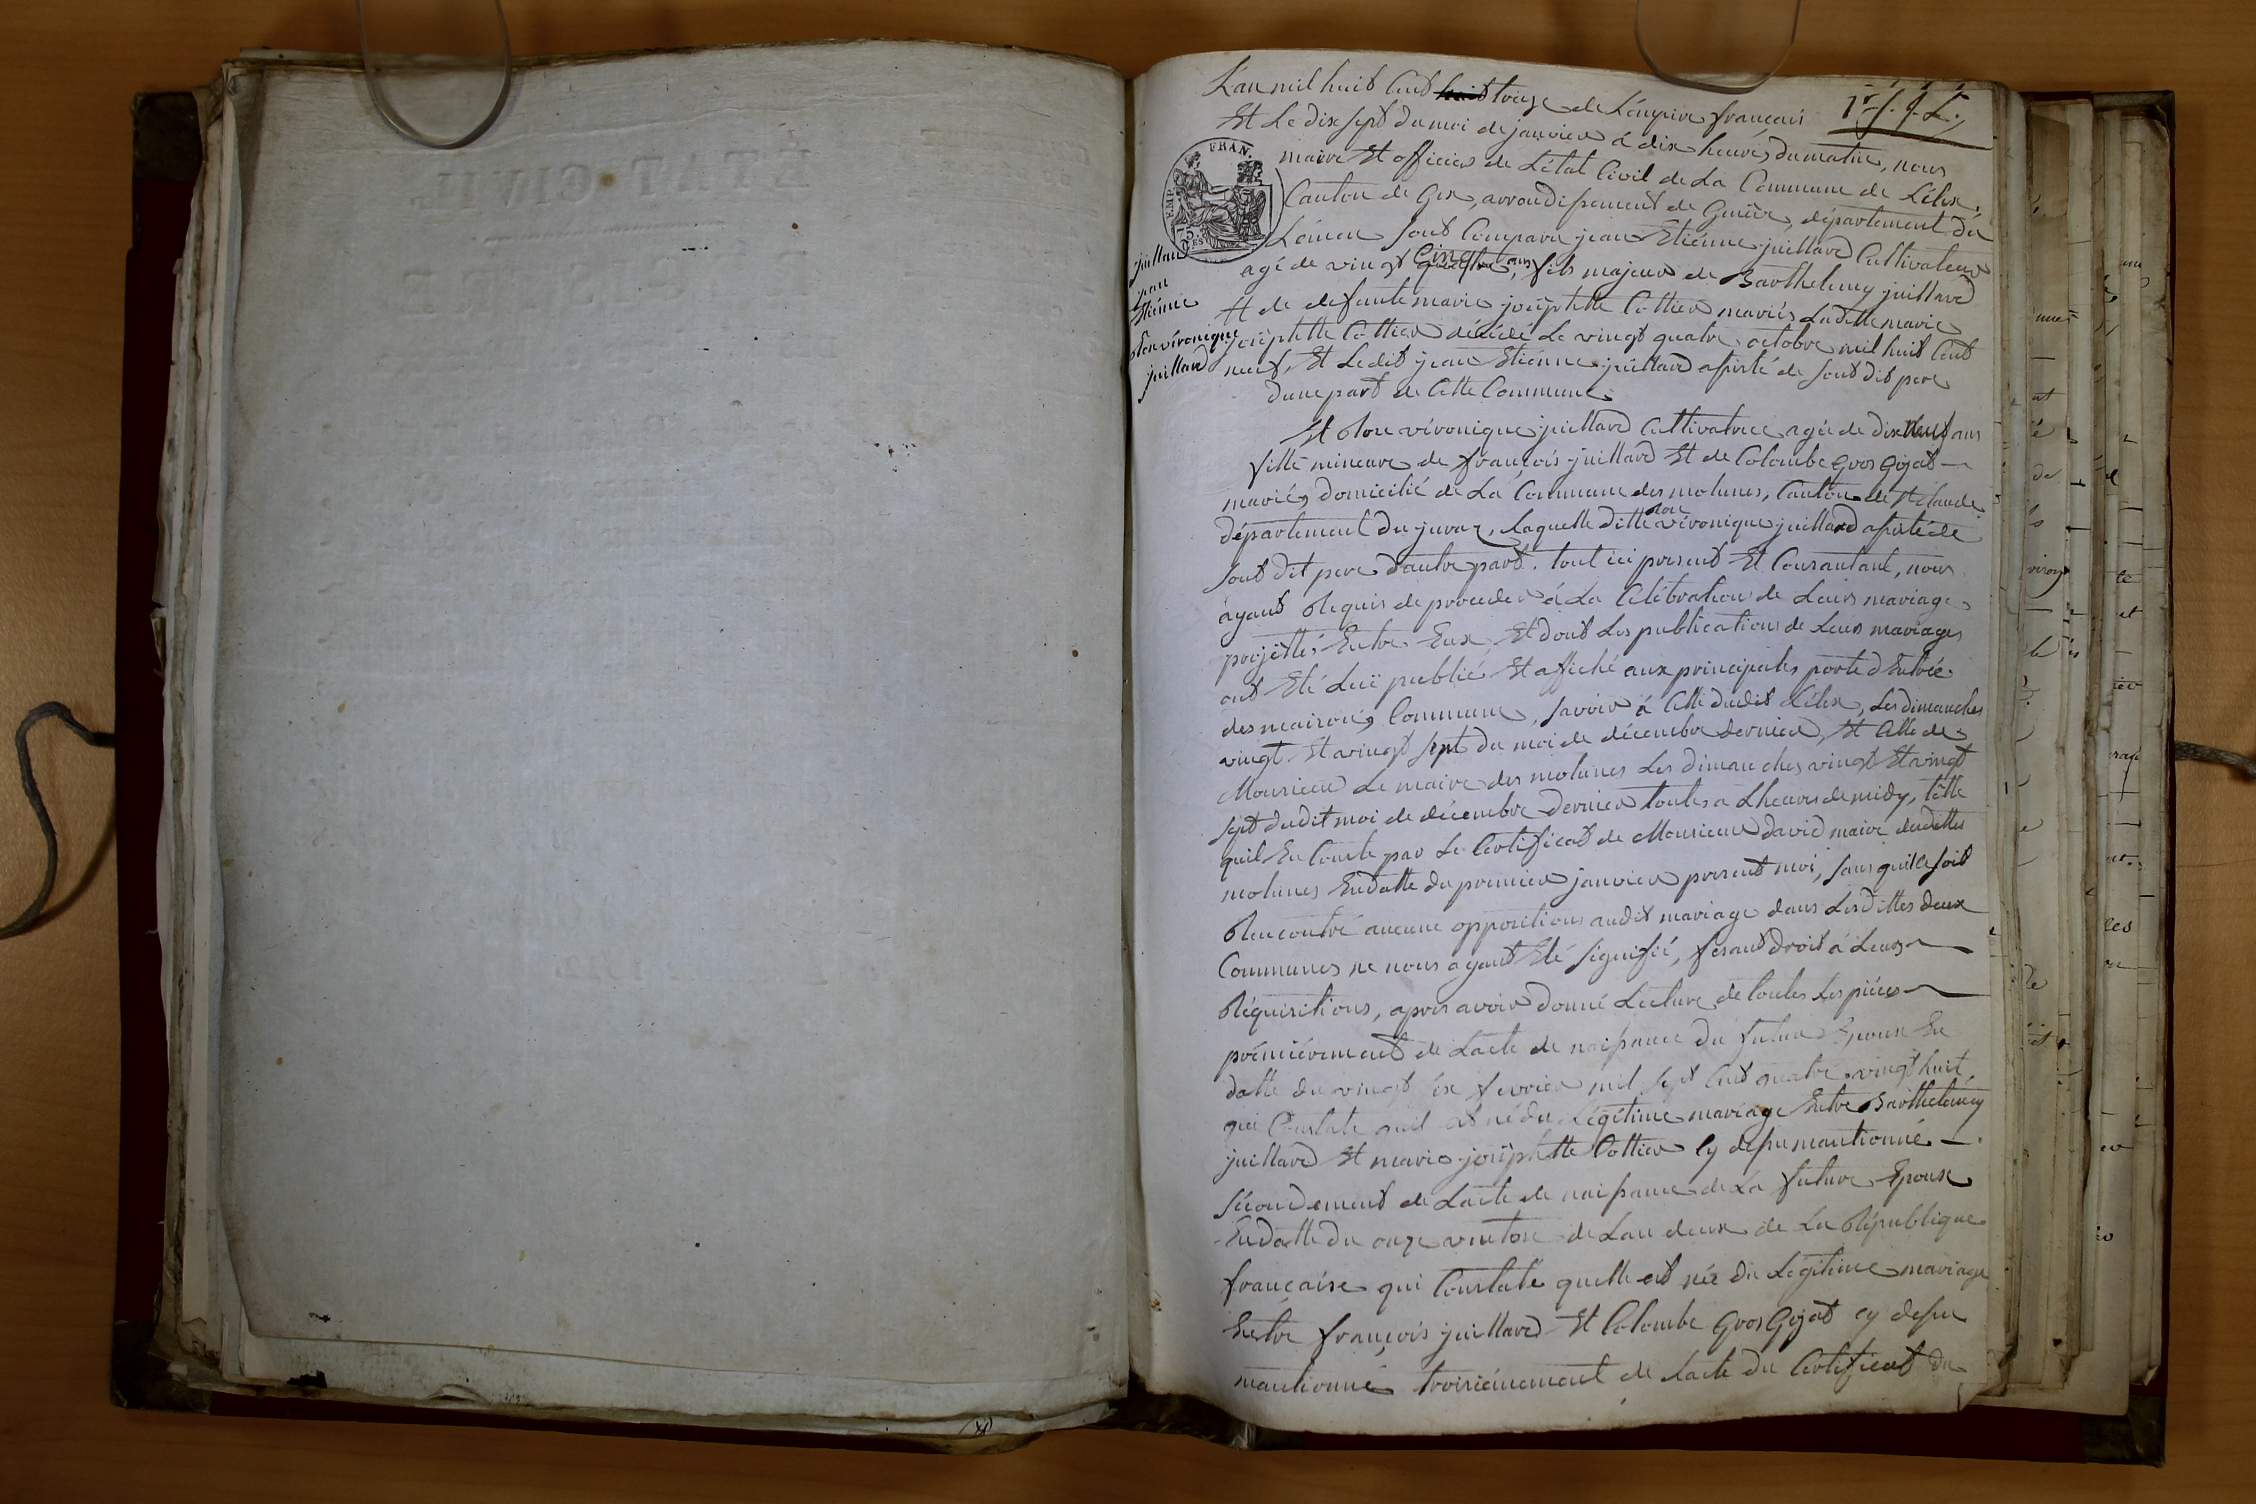 L'an mil huit Cent huit treize de L'empire français 1er f. J. L.
Et Le dix sept du moi de janvier à dix heures du matin, nous
maire Et officier de L'état Civil de La Commune de Lélex,
Canton de Gex, arrondissement de Genève, département du
Léman sont Comparu jean Etiénne juillard Cultivateur
agé de vingt Cinq ans, fils majeur de Barthelemy juillard
Et de defunte marie joséphtte Cottier mariés Laditte marie
joséphtte Cottier décédé Le vingt quatre octobre mil huit Cent
neuf, Et Ledit jean Etiénne juillard assisté de sont dit pere
dune part de Cette Commune.
juillard
jean
Etiénne
véronique
juillard
FRAN.
EMP.
75
CES
Et véronique juillard Cultivatrice agée de dix neuf ans
fille mineure de françois juillard Et de Colombe Gros Gojat
mariés, domicilié de La Commune des molunes, Canton de St Claude
département du jura, Laquelle ditte véronique juillard assisté de
sont dit pere dautre part. tout ici present Et Consantant, nous
ayant Requis de proceder à La Célébration de Leurs mariage
projettés Entre Eux, Et dont Les publications de Leurs mariages
ont Eté Lui publié Et affiché aux principales porte d'Entrée
des mairoirs, Commune, savoir à Celle dudit Lélex, Les dimanches
vingt Et vingt sept du moi de décembre dernier, Et Celle de
Monsieur Le maire des molunes Les dimanches vingt Et vingt
sept dudit moi de décembre dernier toutes a Lheure de midy, telle
quil En Conste par Le Certificat de Monsieur david maire desdittes
molunes En datte du premier janvier present moi, sans quille soit
Rencontré aucune oppositions audit mariage dans Lesdittes deux
Communes ne nous ayant Eté signifié, fesant droit à Leurs
Réquisitions, apres avoir donné Lecture de toutes Les piéces
prémiérement de Lacte de naissance du futur Epoux En
datte du vingt six fevrier mil sept Cent quatre vingt huit,
qui Constate quil est né du Légitime mariage Entre Barthelemy
juillard Et marie joséphtte Cottier Cy dessu mantionné.
sécondement de Lacte de naissance de La future Epouse
En datte du onze ventose de Lan deux de La République
française qui Constate quelle est née du Légitime mariage
Entre françois juillard Et Colombe Gros Gojat cy dessu
mantionné troisiémement de Lacte du Certificat du
ÉTAT CIVIL